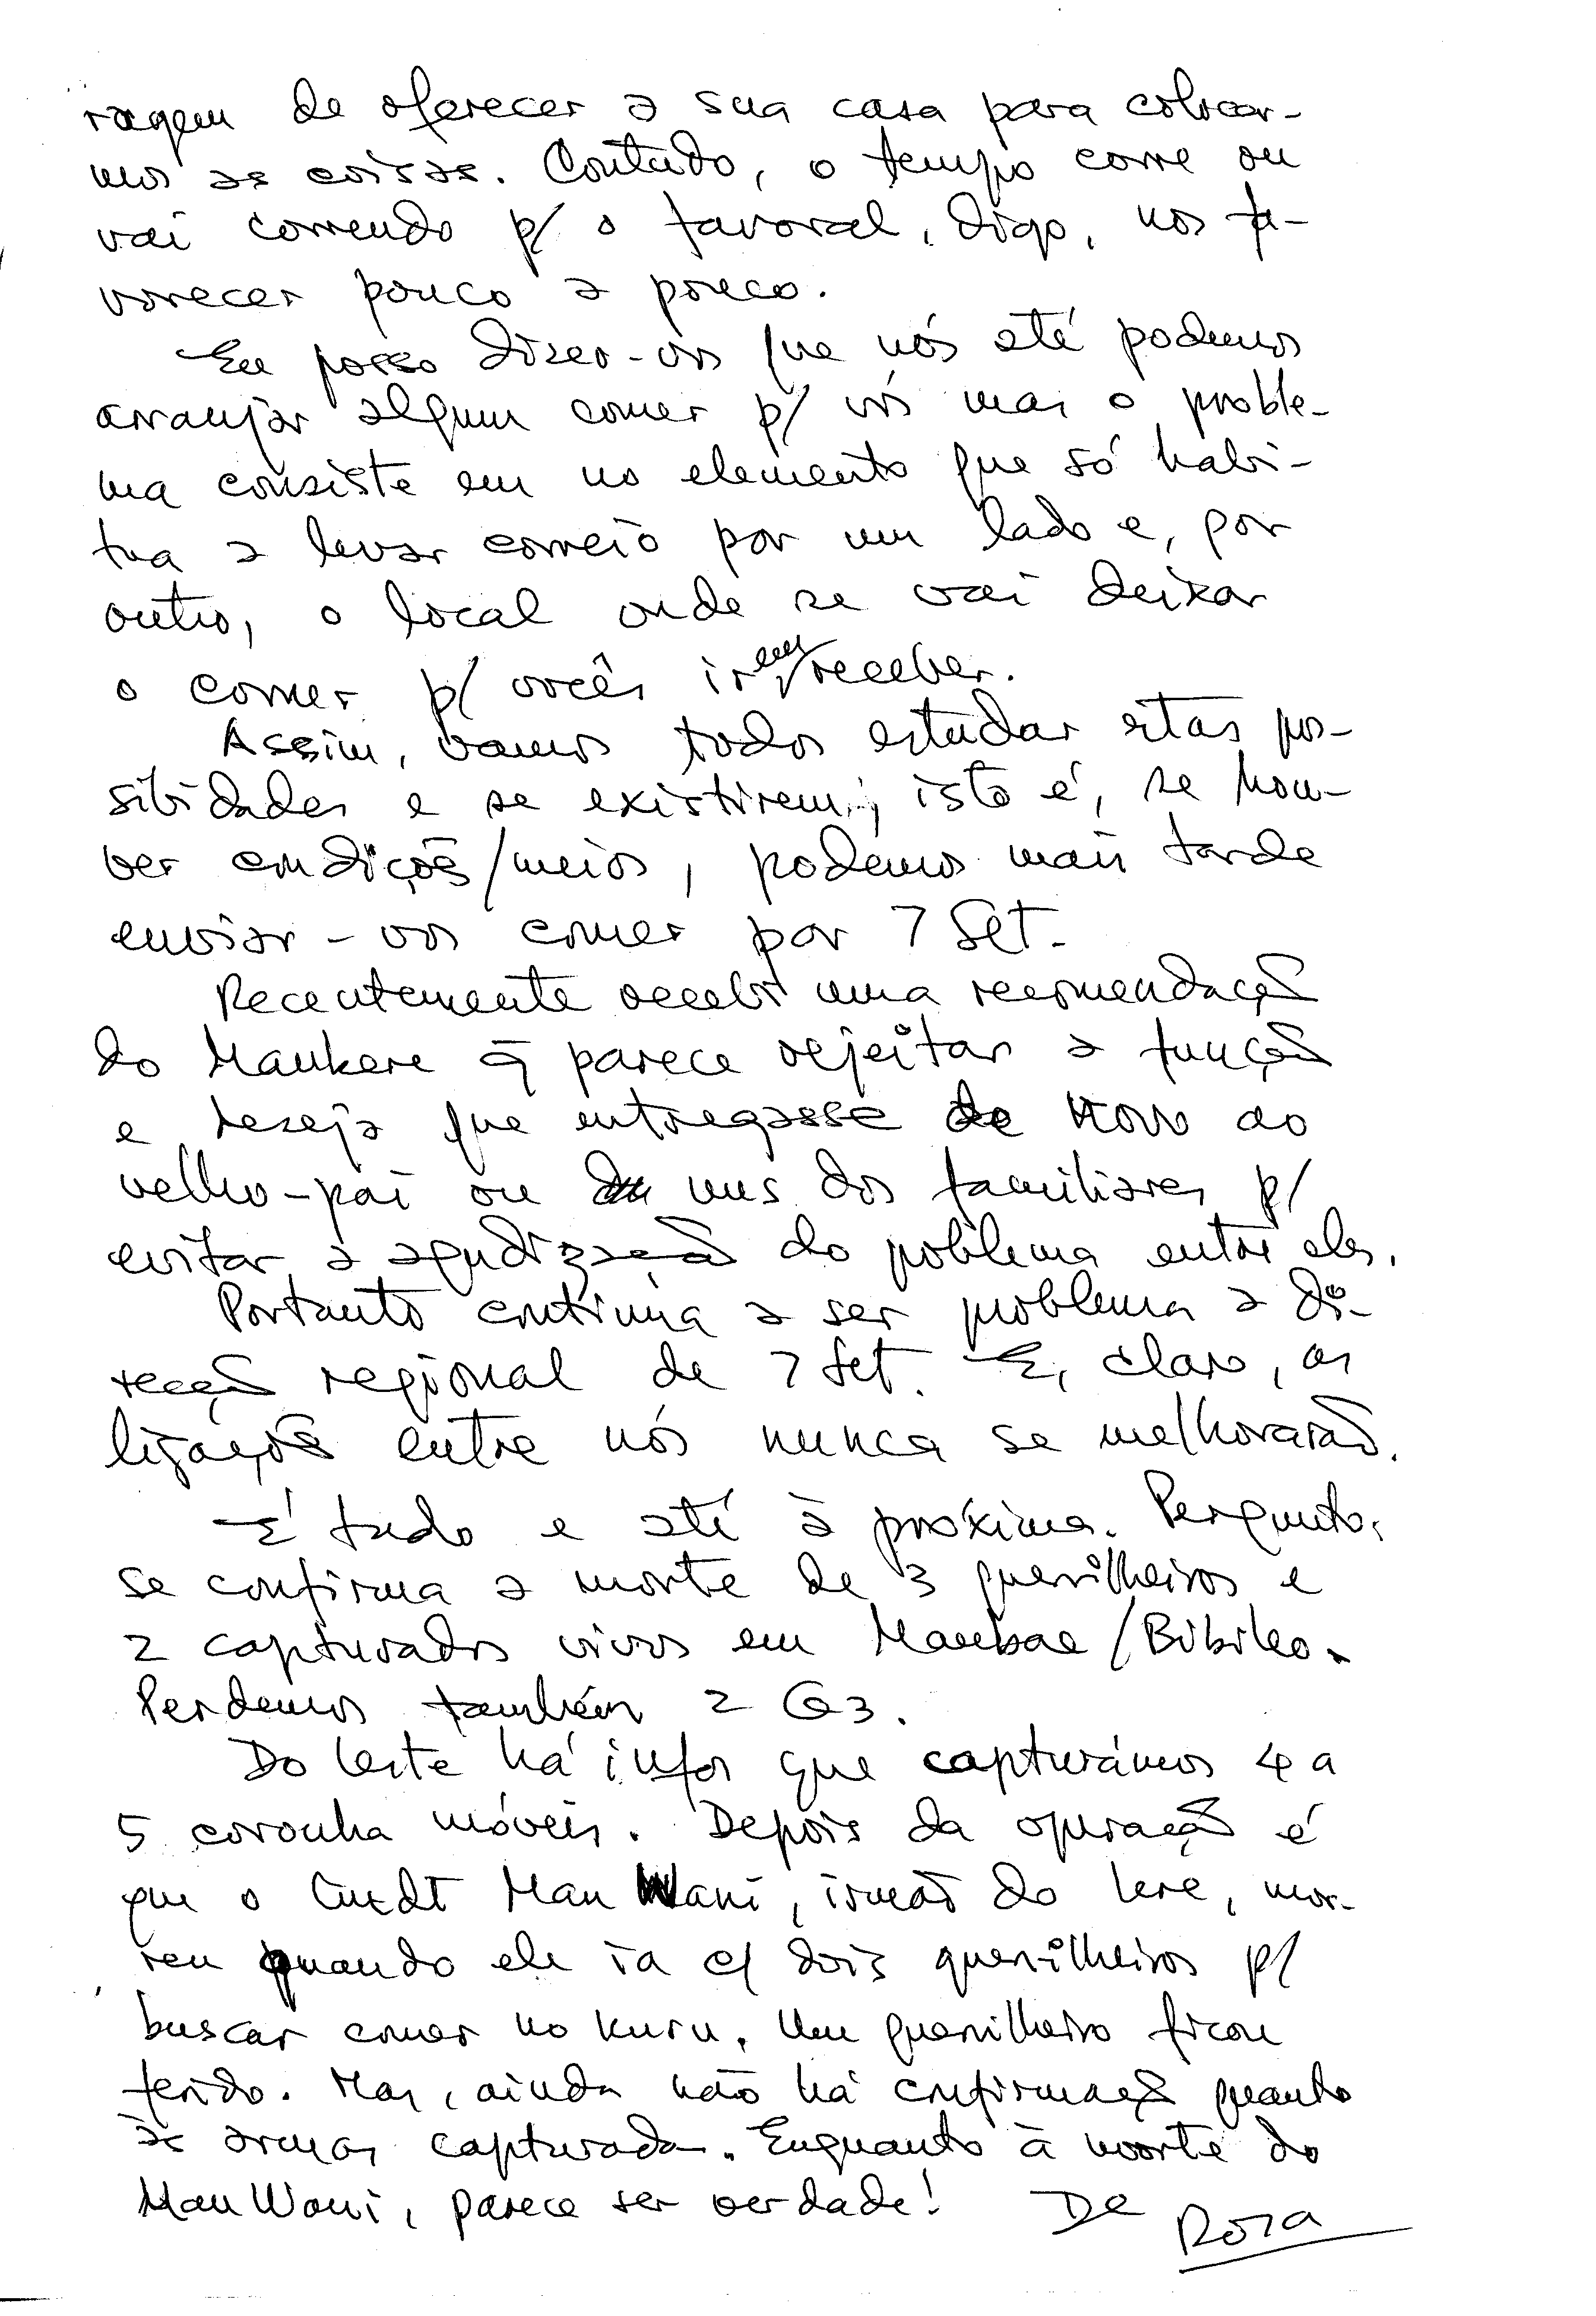 ragem de oferecer a sua casa para colocar-
mos as coisas. Contudo, o tempo corre ou
vai correndo p/ o favoral, digo, nos fa-
vorecer pouco a pouco.
Eu posso dizer-vos que nós até podemos
arranjar algum comer p/ vós mas o proble-
ma consiste em no elemento que só habi-
tua a levar correio por um lado e, por
outro, o local onde se vai deixar
o comer p/ vocês irem receber.
Assim, vamos todos estudar estas pos-
sibidades e se existirem; isto é, se hou-
ver condições/meios, podemos mais tarde
enviar-vos comer por 7 Set.
Recentemente recebi uma recomendação
do Maukere q̄ parece rejeitar a função
e deseja que entregasse de novo ao
velho-pai ou uns dos familiares p/
evitar a agudização do problema entre eles.
Portanto continua a ser problema a di-
recção regional de 7 Set. E, claro, as
ligações entre nós nunca se melhorarão.
É tudo e até à próxima. Pergunto,
se confirma a morte de 3 guerrilheiros e
2 capturados vivos em Maubae/Bibileo.
Perdemos também 2 G3.
Do leste há infos que capturámos 4 a
5 coronha móveis. Depois da operação é
que o Cmdt Mau Wani, irmão do Lere, mor-
reu quando ele ia c/ dois guerrilheiros p/
buscar comer no kuru. Um guerrilheiro ficou
ferido. Mas, ainda não há confirmação quanto
às armas capturadas. Enquanto à morte do
Mau Wani, parece ser verdade! De
Rosa